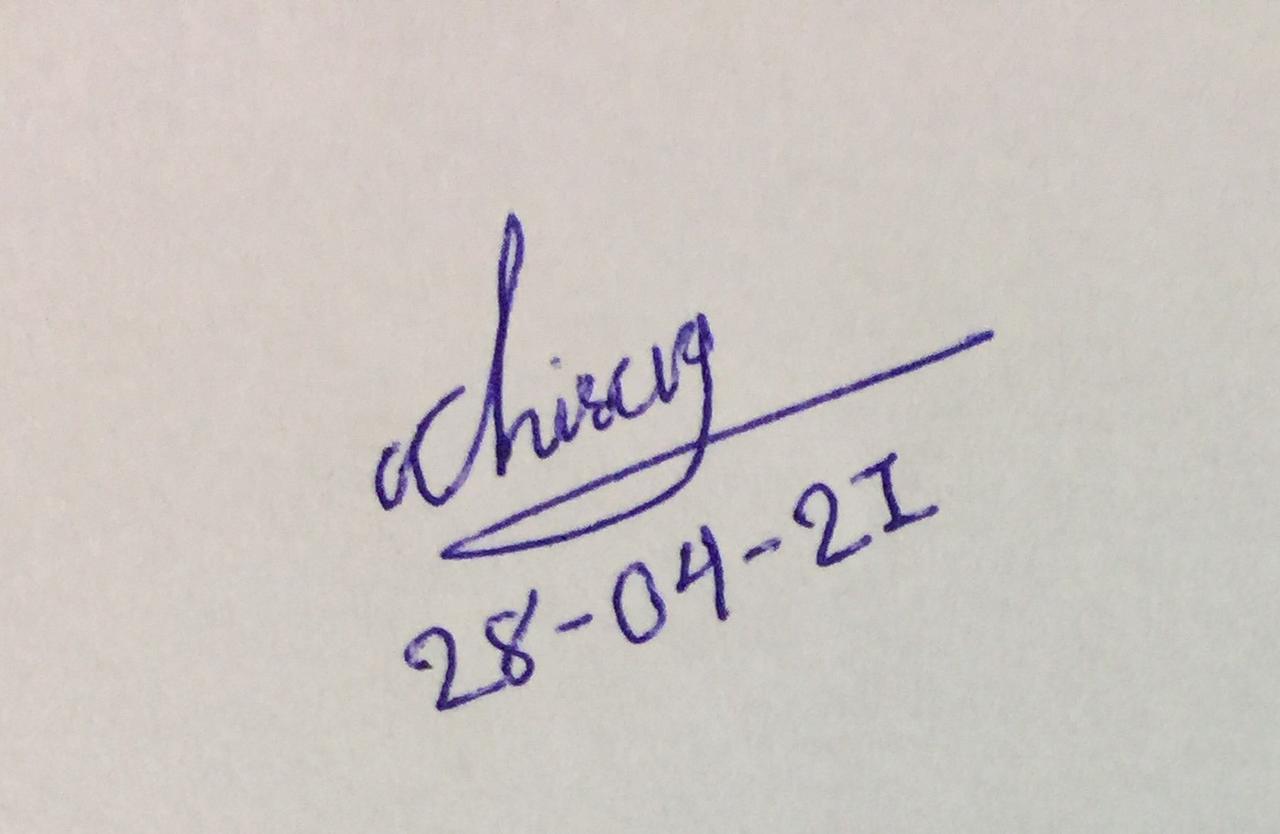 Chirag
28-04-21